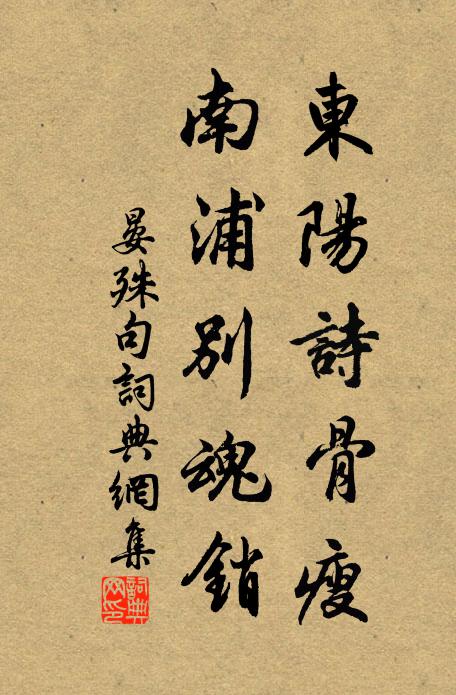 東陽詩骨瘦
南浦別魂銷
晏殊句詞典網集
詞典
网印